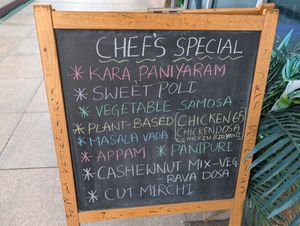 CHEF'S SPECIAL
* KARA PANIYARAM
* SWEET POLI
* VEGETABLE SAMOSA
* PLANT-BASED CHICKEN 65
CHICKEN DOSA
CHICKEN BIRYANI
* MASALA VADA
* APPAM * PANIPURI
* CASHEWNUT MIX-VEG
- RAVA DOSA
* CUT MIRCHI